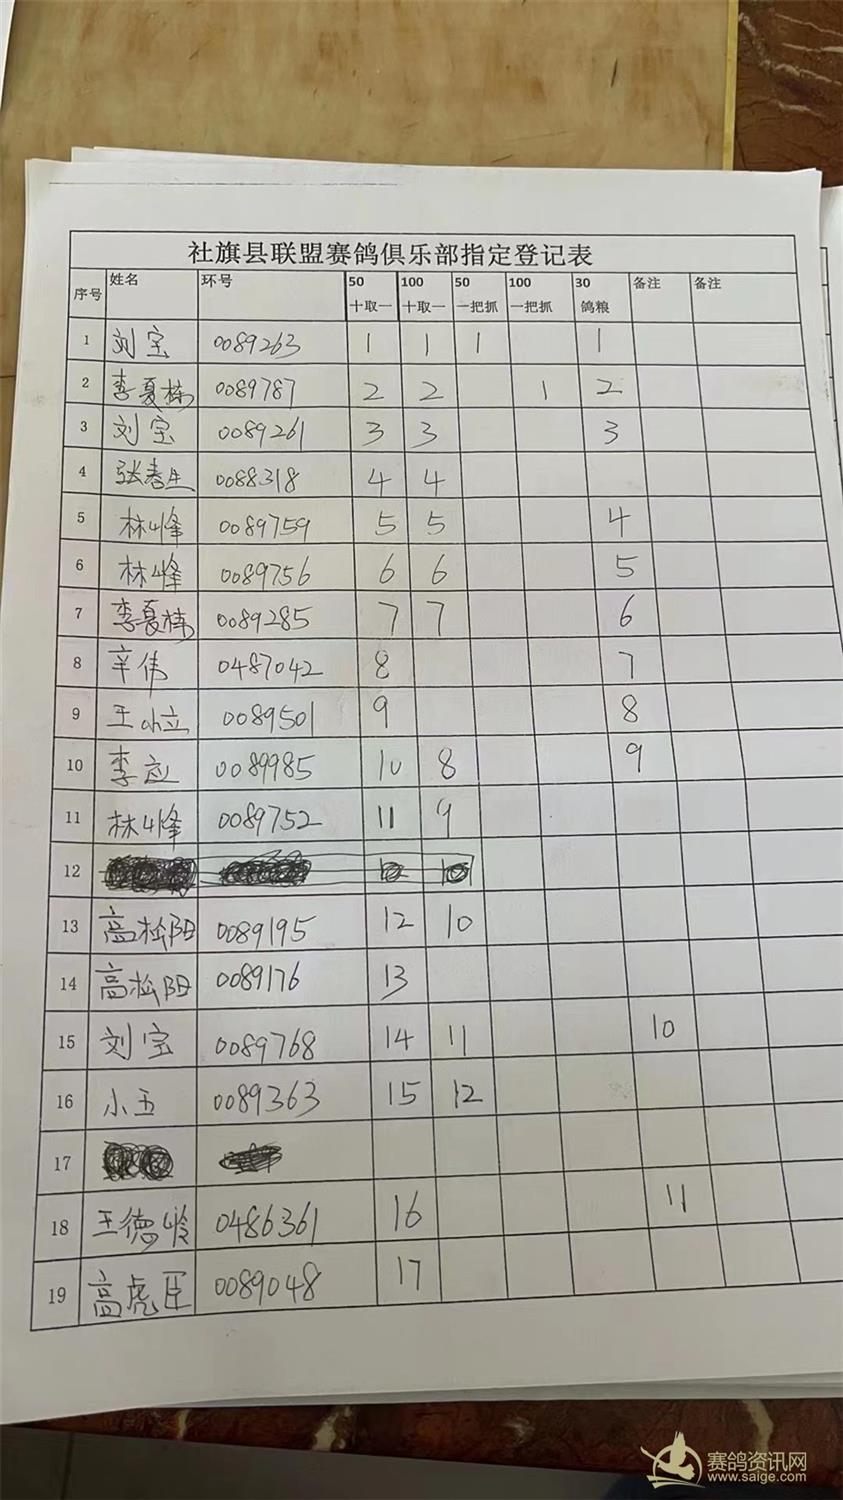 社旗县联盟赛鸽俱乐部指定登记表
序号 姓名 环号 50 十取一 100 十取一 50 一把抓 100 一把抓 30 鸽粮 备注 备注
1 刘宝 0089263 1 1 1 1
2 李夏栋 0089787 2 2 1 2
3 刘宝 0089261 3 3 3
4 张春生 0088318 4 4
5 林峰 0089759 5 5 4
6 林峰 0089756 6 6 5
7 李夏栋 0089285 7 7 6
8 辛伟 0487042 8 7
9 王小立 0089501 9 8
10 李应 0089985 10 8 9
11 林峰 0089752 11 9
12
13 高松阳 0089195 12 10
14 高松阳 0089176 13
15 刘宝 0089768 14 11 10
16 小五 0089363 15 12
17
18 王德岭 0486361 16 11
19 高虎臣 0089048 17
赛鸽资讯网
www.saige.com